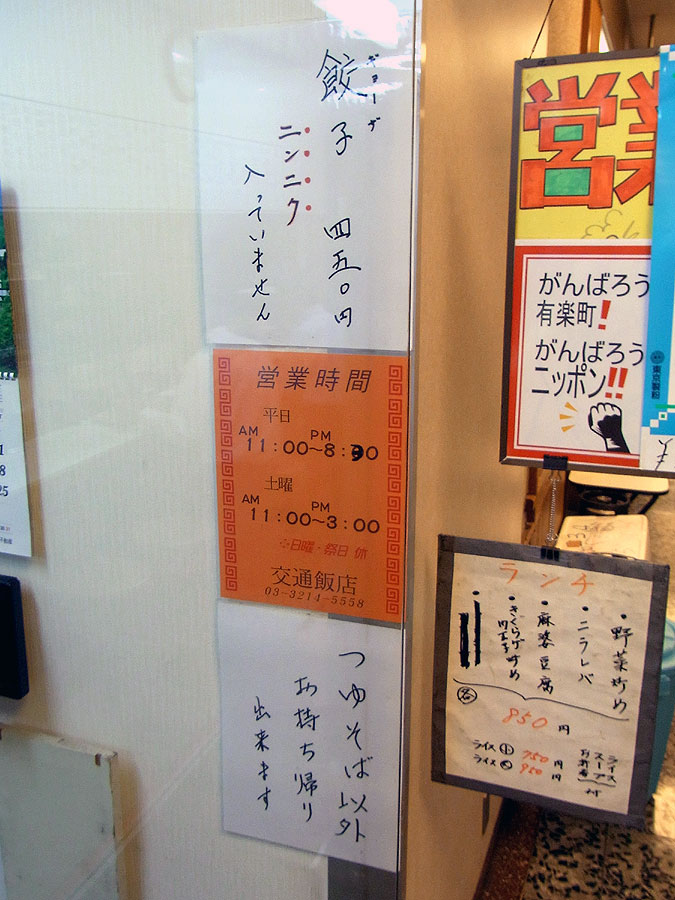 ギョーザ
餃子 四五〇円
ニンニク
入っていません
営業時間
平日
AM PM
11:00〜8:00
土曜
AM PM
11:00〜3:00
日曜・祭日 休
交通飯店
03-3214-5558
つゆそば以外
お持ち帰り
出来ます
営業
がんばろう
有楽町!
がんばろう
ニッポン!!
東京製粉
ランチ
・野菜炒め
・ニラレバ
・麻婆豆腐
・きくらげ炒め
肉玉子
各
850円
ライス
スープ
お新香 付
ライス小 750円
ライス大 950円
8
25